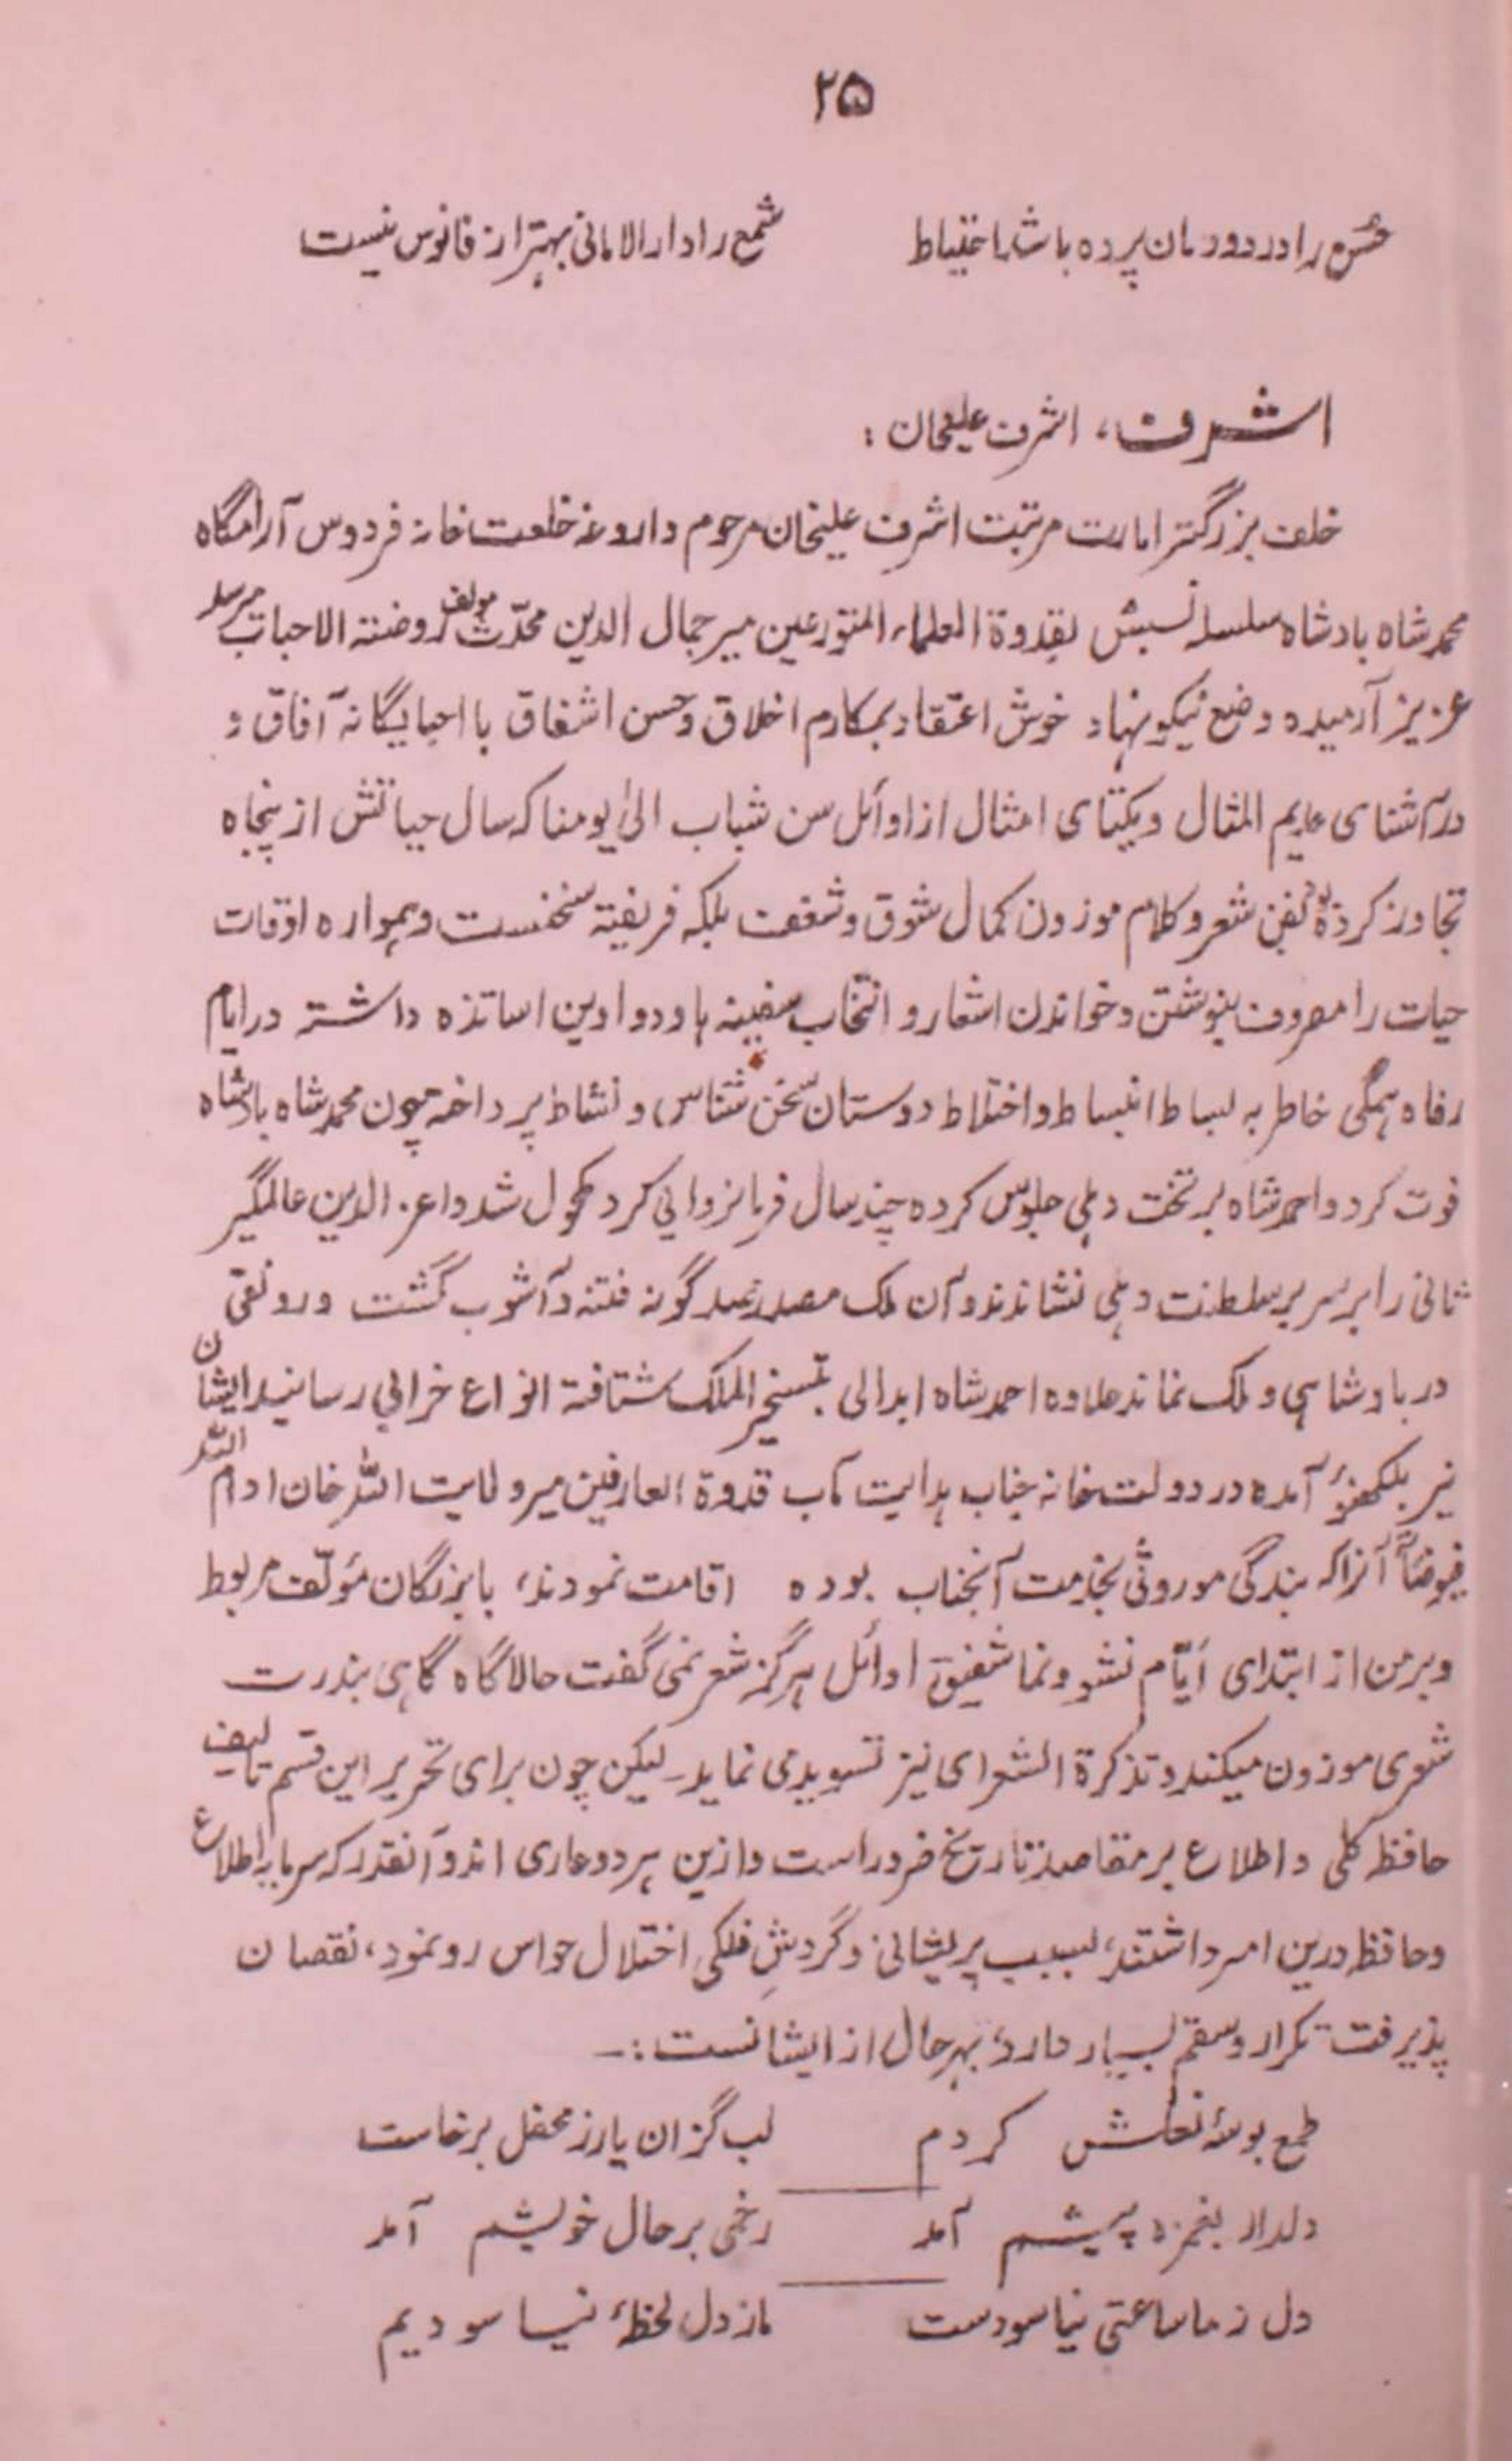 ۲۵
حسن را در دودمان پرده باشد احتیاط شمع را دارالامانی بهتر از فانوس نیست
اشرف، اشرف علیخان :
خلف بزرگتر امارت مرتبت اشرف علیخان مرحوم داروغهٔ خلعت خانه فردوس آرامگاه
محمد شاه بادشاه سلسله نسبش بقدوة العلماء المتورعین میر جمال الدین محدّث مولف روضته الاحباب میرسد
عزیز آرمیده وضع نیکو نهاد خوش اعتقاد بمکارم اخلاق و حسن اشفاق با احبا یگانه آفاق و
در آشنای عدیم المثال و یکتای امثال از اوائل سن شباب الیٰ یومنا که سال حیاتش از پنجاه
تجاوز کرده بود بفن شعر و کلام موزون کمال شوق و شغف بلکه فریفتهٔ سخنست و همواره اوقات
حیات را مصروف بنوشتن و خواندن اشعار و انتخاب سفینه ها و دواوین اساتذه داشته در ایام
رفاه همگی خاطر به بساط انبساط و اختلاط دوستان سخن شناس و نشاط پرداخته چون محمد شاه بادشاه
فوت کرد و احمد شاه بر تخت دهلی جلوس کرده چند سال فرمانروایی کرد مکحول شد و اعز الدین عالمگیر
ثانی را بر سریر سلطنت دهلی نشاندند و آن ملک مصدر صد گونه فتنه و آشوب گشت و رونقی
در بادشاهی و ملک نماند علاوه احمد شاه ابدالی بتسخیر الملک شتافته انواع خرابی رسانید ایشان
نیز بلکهنؤ آمده در دولتخانه جناب هدایت مآب قدوة العارفین میر ولایت اللہ خان ادام اللہ
فیوضاً آنرا که بندگی موروثی بخدمت آنجناب بوده اقامت نمودند، با بزرگان مؤلّف مربوط
و بر من از ابتدای ایّام نشو و نما شفیق اوائل هرگز شعر نمی گفت حالا گاه گاهی بندرت
شعری موزون میکند و تذکرة الشعرای نیز تسوید می نماید۔ لیکن چون برای تحریر این قسم تالیف
حافظه کلی و اطلاع بر مقاصد تاریخ ضرور است و ازین هر دو عاری اند و آنقدر که سرمایه اطلاع
و حافظه درین امر داشتند، بسبب پریشانی و گردشِ فلکی اختلال حواس رو نمود، نقصان
پذیرفت تکرار و سقم بسیار دارد؛ بهر حال از ایشانست :۔
طمع بوسهٔ لعلش کردم لب گزان یار ز محفل برخاست
دلدار بغمزه پیشم آمد رحمی بر حال خویشم آمد
دل ز ما ساعتی نیاسودست ما ز دل لحظهٔ نیاسودیم